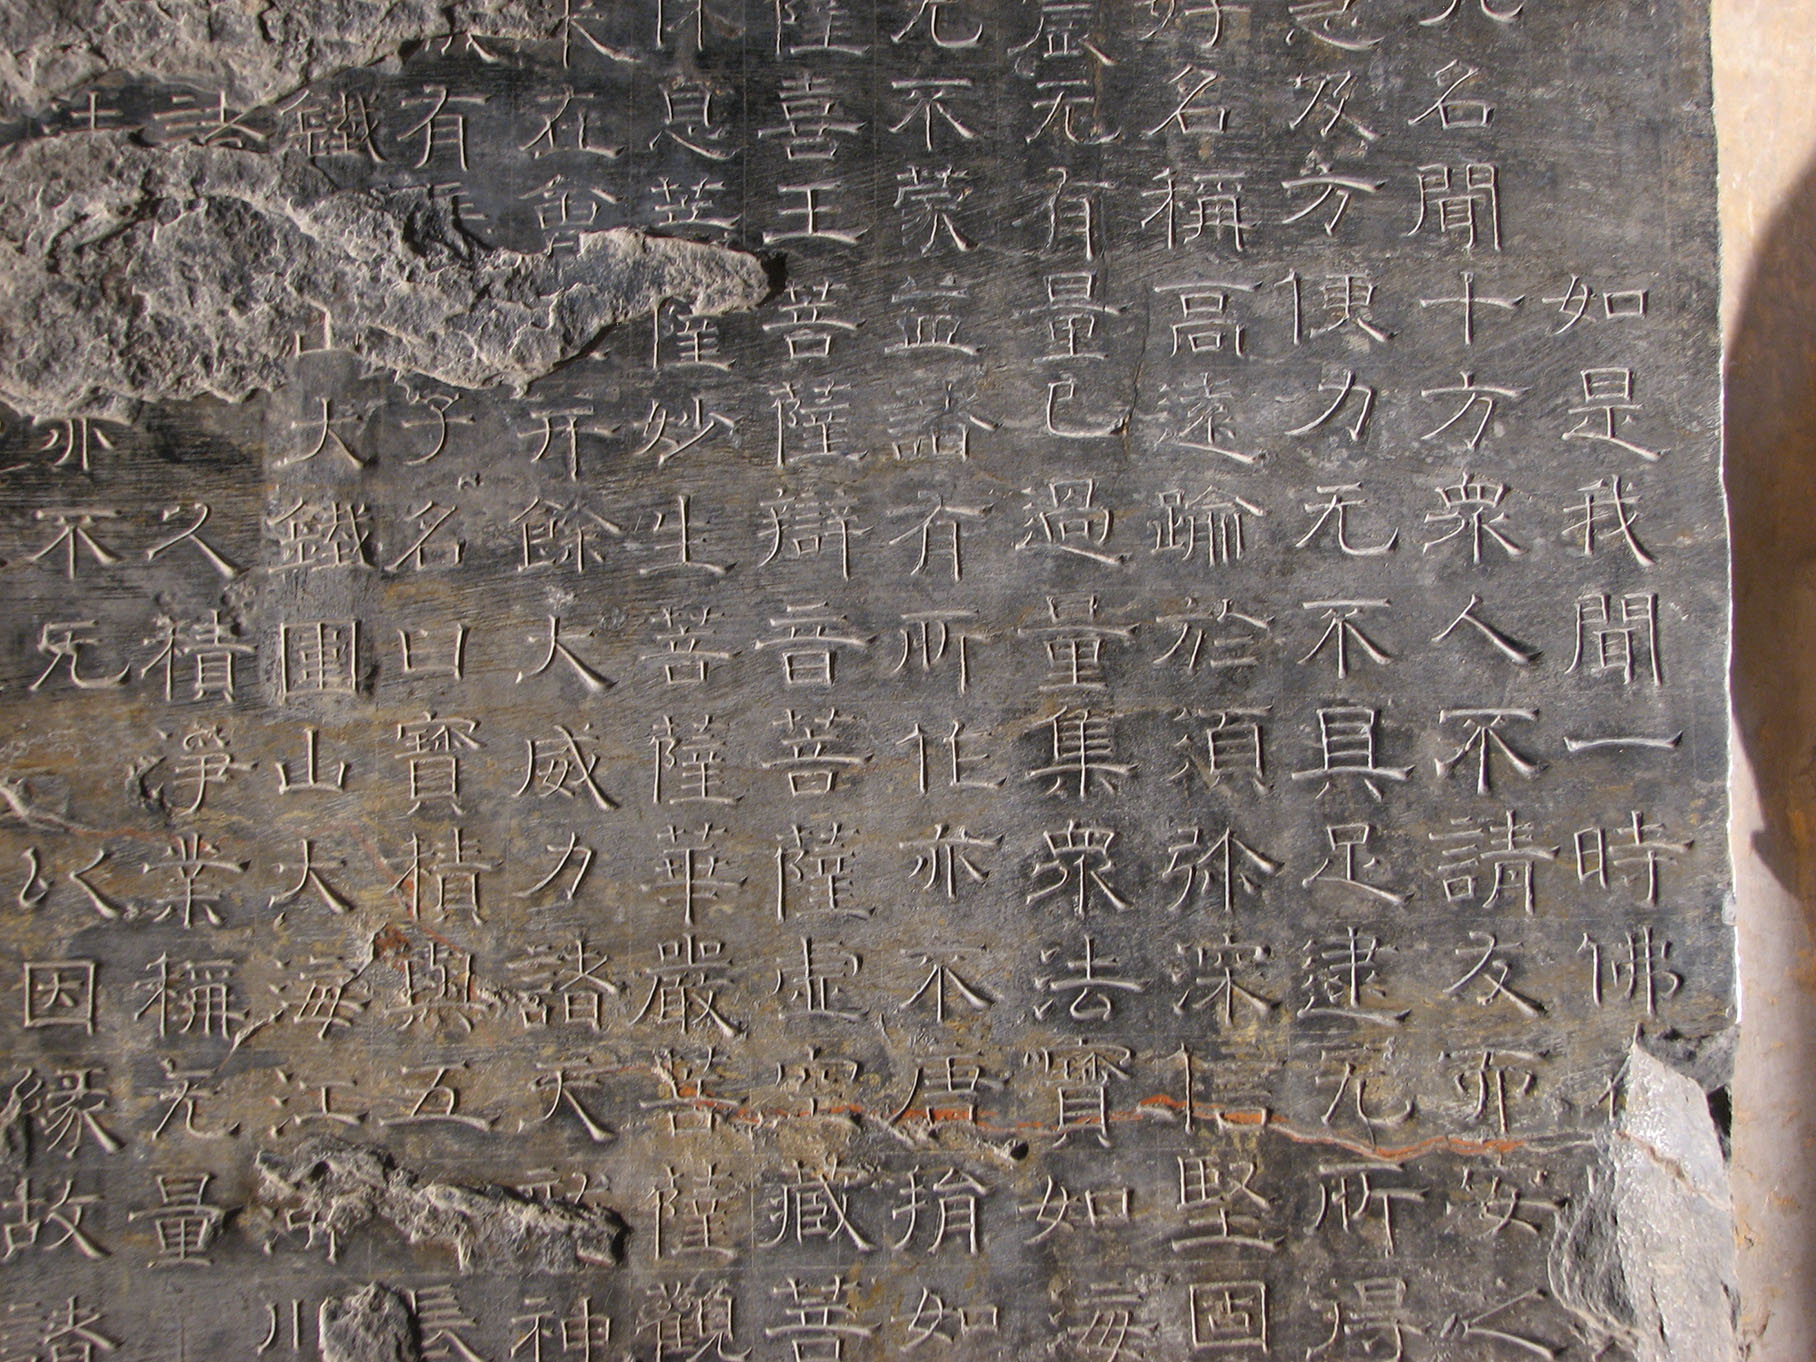 如是我聞一時佛
名聞十方衆人不請友而安之
忍及方便力无不具足逮无所得
好名稱高遠踰於須彌深信堅固
虛无有量已過量集衆法寶如海
无不蒙益諸有所作亦不唐捐如
薩喜王菩薩辯音菩薩虛空藏菩
休息菩薩妙生菩薩華嚴菩薩觀
來在會并餘大威力諸天龍神
有長子名曰寶積與五長
鐵山大鐵圍山大海江河川
諸久積淨業稱无量
法亦不无以因緣故諸